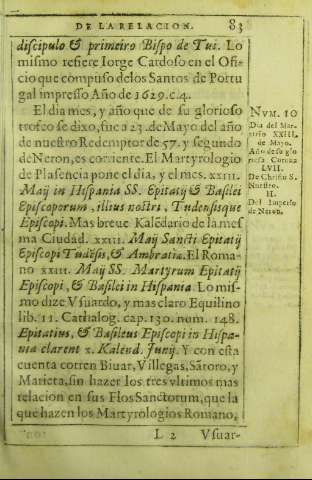 DE LA RELACION. 83
discipulo & primeiro Bispo de Tui. Lo
mismo refiere Iorge Cardoso en el Ofi
cio que compuso delos Santos de Portu
gal impresso Año de 1629. c. 4.
El dia mes, y año que de su glorioso
trofeo se dixo, fue a 23. de Mayo del año
de nuestro Redemptor de 57. y segundo
de Neron, es corriente. El Martyrologio
de Plasencia pone el dia, y el mes. XXIII.
Maij in Hispania SS. Epitatij & Basilei
Episcoporum, illius nostri, Tudensisque
Episcopi. Mas breve Kalẽdario de la mes
ma Ciudad. XXIII. Maij Sancti Epitatij
Episcopi Tudẽsis, & Ambratiæ. El Roma-
no XXIII. Maij SS. Martyrum Epitatij
Episcopi, & Basilei in Hispania. Lo mis-
mo dize Vsuardo, y mas claro Equilino
lib. 11. Cathalog. cap. 130. num. 148.
Epitatius, & Basileus Episcopi in Hispa-
nia clarent x. Kalend. Junij. Y con esta
cuenta corren Bivar, Villegas, Sãtoro, y
Marieta, sin hazer los tres vltimos mas
relacion en sus Flos Sanctorum, que la
que hazen los Martyrologios Romano,
L 2 Vsuar-
NVM. 10
Dia del Mar-
tirio XXIII.
de Mayo.
Año de su glo
riosa Corona
LVII.
De Christo S.
Nuestro.
II.
Del Imperio
de Neron.